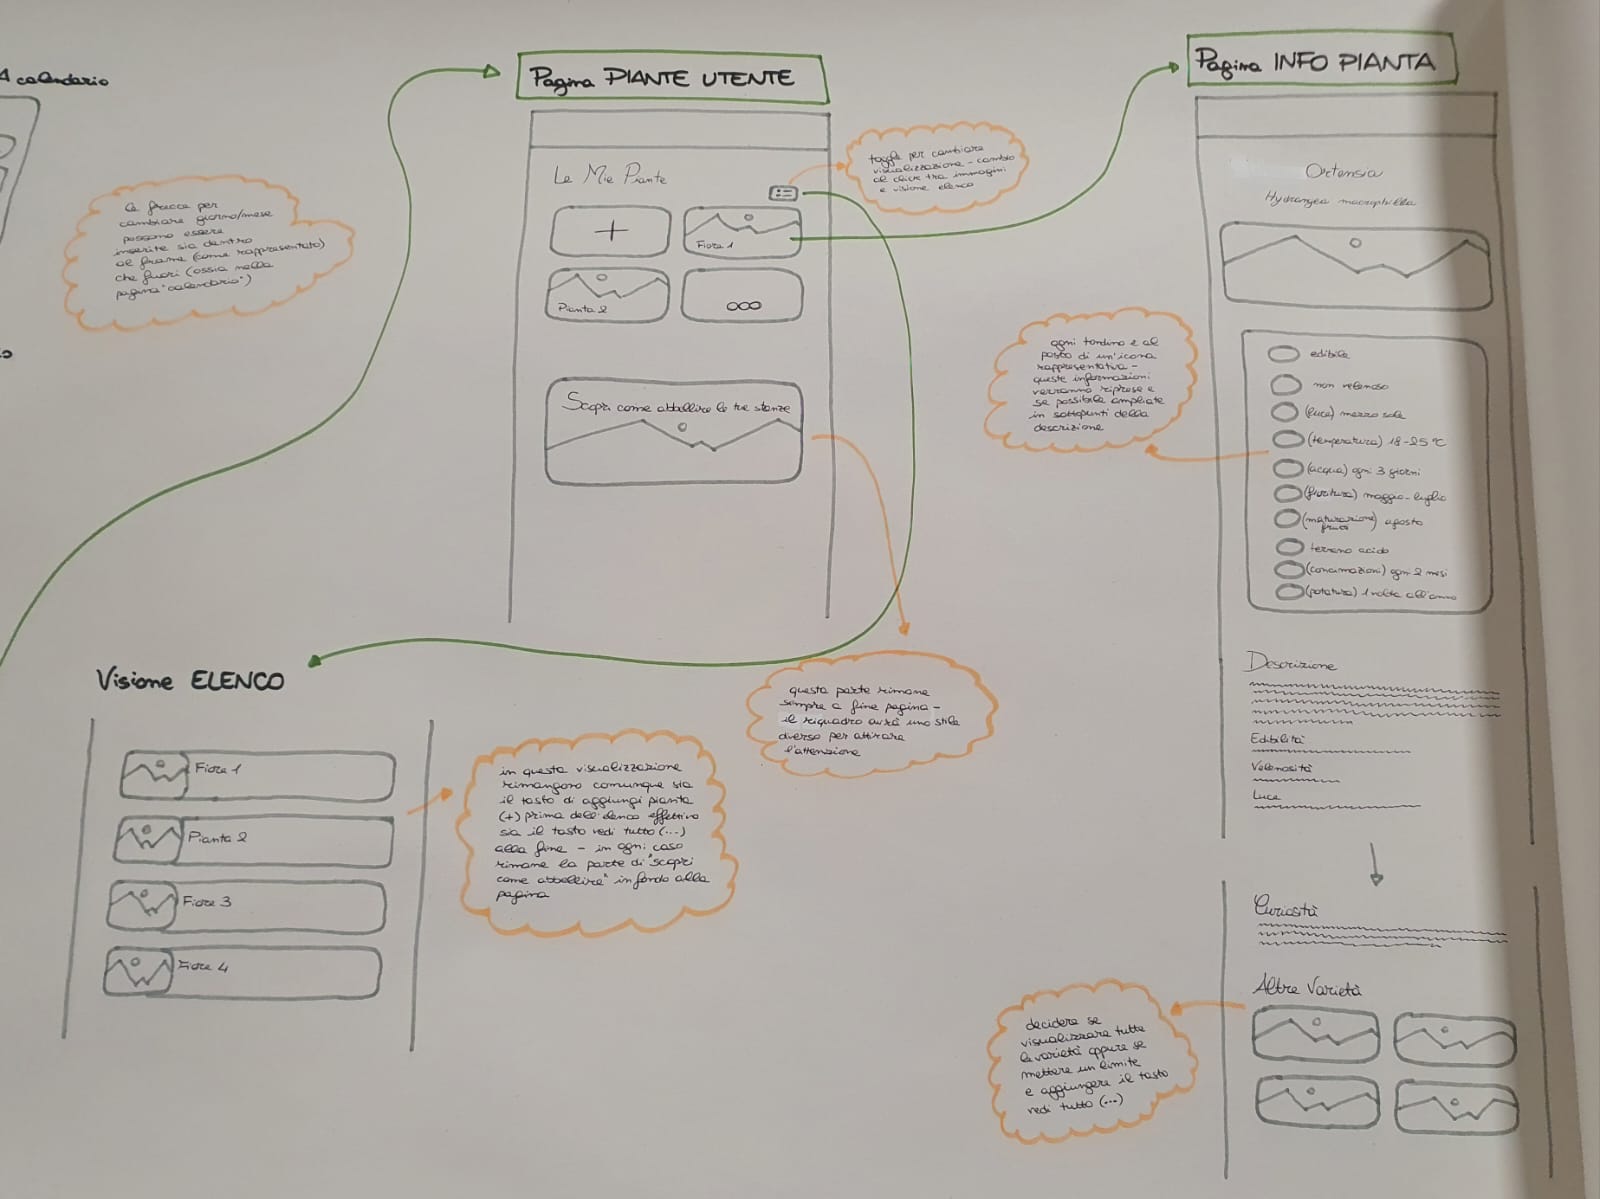 calendario
le frecce per
cambiare giorno/mese
possono essere
inserite sia dentro
al frame (come rappresentato)
che fuori (ossia nella
pagina "calendario")
Pagina PIANTE UTENTE
Le Mie Piante
+
Fiore 1
Pianta 2
ooo
Scopri come abbellire le tue stanze
toggle per cambiare
visualizzazione - cambio
al click tra immagini
e visione elenco
questa parte rimane
sempre a fine pagina -
il riquadro avrà uno stile
diverso per attirare
l'attenzione
Visione ELENCO
Fiore 1
Pianta 2
Fiore 3
Fiore 4
in questa visualizzazione
rimangono comunque sia
il tasto di aggiungi pianta
(+) prima dell'elenco effettivo
sia il tasto vedi tutto (...)
alla fine - in ogni caso
rimane la parte di "scopri
come abbellire" in fondo alla
pagina
Pagina INFO PIANTA
Ortensia
Hydrangea macrophilla
ogni tondino è al
posto di un'icona
rappresentativa -
queste informazioni
verranno riprese e
se possibile ampliate
in sottopunti della
descrizione
edibile
non velenoso
(luce) mezzo sole
(temperatura) 18-25 °C
(acqua) ogni 3 giorni
(fioritura) maggio-luglio
(maturazione frutto) agosto
terreno acido
(concimazioni) ogni 2 mesi
(potatura) 1 volta all'anno
Descrizione
Edibilità
Velenosità
Luce
Curiosità
Altre Varietà
decidere se
visualizzare tutte
le varietà oppure se
mettere un limite
e aggiungere il tasto
vedi tutto (...)